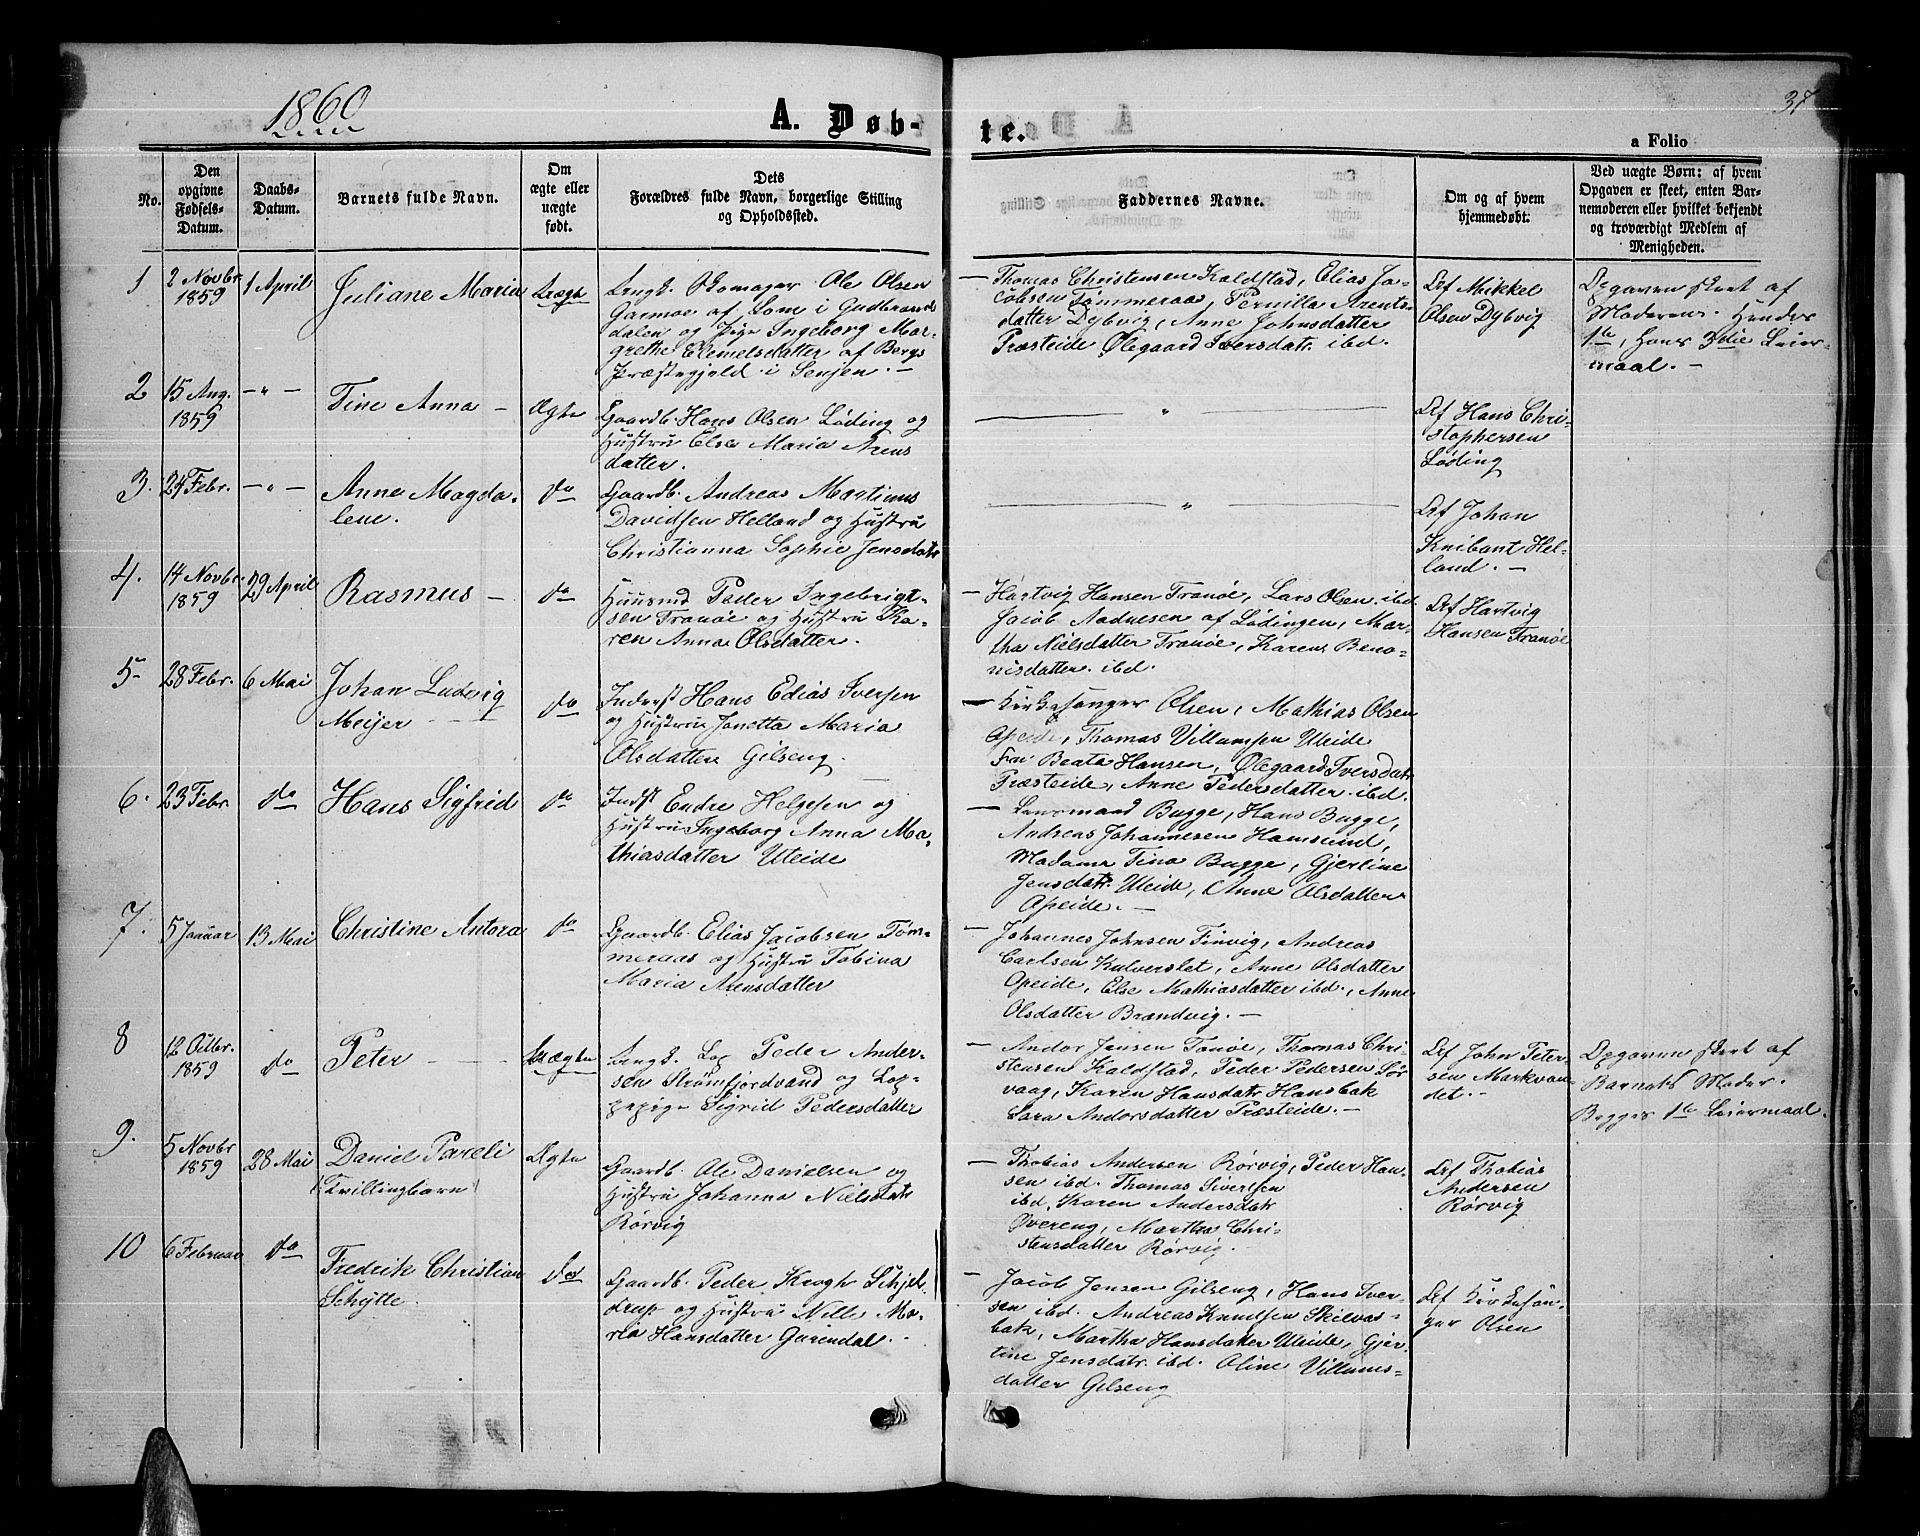 1860
A. Døb-
te.
37
a Folio
No.
Den
opgivne
Fødsels-
Datum.
Daabs-
Datum.
Barnets fulde Navn.
Om
ægte eller
uægte
født.
Dets
Forældres fulde Navn, borgerlige Stilling
og Opholdssted.
Faddernes Navne.
Om og af hvem
hjemmedøbt.
Ved uægte Børn: af hvem
Opgaven er skeet, enten Bar-
nemoderen eller hvilket bekjendt
og troværdigt Medlem af
Menigheden.
1
2 Novbr.
1859
1 April
Juliane Maria
Uægte
Ungk. Skomager Ole Olsen
Garmoe af Lom i Gudbrands
dalen og Pige Ingeborg Mar-
grethe Elemelsdatter af Bergs
Præstegjeld i Senjen. —
— Thomas Christensen Kaldstad, Elias Ja-
cobsen Tømmeraas, Pernilla Arents-
datter Dybvig, Anne Johnsdatter
Præsteide Ølegaard Iversdatr. ibd.
Af Mikkel
Olsen Dybvig
Opgaven skeet af
Moderen. Hendes
1te, Hans 3die Leier-
maal. —
2
15 Aug.
1859
— " —
Tine Anna —
Ægte
Gaardb. Hans Olsen Løding og
Hustru Else Maria Arens
datter.
— " —
Af Hans Chri-
stophersen
Løding
3.
24 Febr.
— " —
Anne Magda-
lene.
do
Gaardb. Andreas Martinus
Davidsen Helland og Hustru
Christianna Sophie Jensdatr
— " —
Af Johan
Knibant Hel-
land. —
4.
14 Novbr.
1859
29 April
Rasmus —
do
Huusmd Peder Ingebrigt-
sen Tranøe og Hustru Ka-
ren Anna Olsdatter.
— Hartvig Hansen Tranøe, Lars Olsen ibd.
Jacob Aadnesen af Lødingen, Mar-
tha Nielsdatter Tranøe, Karen Beno-
nisdatter ibd.
Af Hartvig
Hansen Tranøe
5
28 Febr.
6 Mai
Johan Ludvig
Meijer —
do
Inderst Hans Edias Iversen
og Hustru Janetta Maria
Olsdatter Gilseng.
— Kirkesanger Olsen, Mathias Olsen
Apeide, Thomas Villumsen Uleide
Fru Beata Hansen, Ølegaard Iversdatr
Præsteide, Anne Pedersdatter ibd.
6.
23 Febr
do
Hans Sigfrid
do
Indst Endre Helgesen og
Hustru Ingeborg Anna Ma-
thiasdatter Uleide
— Lensmand Bugge, Hans Bugge,
Andreas Johannesen Hamsund,
Madame Tina Bugge, Gjertine
Jensdatr. Uleide, Anne Olsdatter
Apeide. —
7.
5 Januar
13 Mai
Christine Antora
do
Gaardb. Elias Jacobsen Tøm-
meraas og Hustru Tobina
Maria Arensdatter
— Johannes Johnsen Finvig, Andreas
Carlsen Kulverslet, Anne Olsdatter
Apeide, Else Mathiasdatter ibd., Anne
Olsdatter Brændvig. —
8
12 Octbr.
1859
do
Peter —
Uægte
Ungk. Lap Peder Ander-
sen Strømfjordvand og Lap-
pepige Sigrid Pedersdatter
— Andor Jensen Tanøe, Thomas Chri-
stensen Kaldstad, Peder Pedersen Sør
vaag, Karen Hansdatr Hansbak
Sara Andorsdatter Præsteide. —
Af John Peter-
sen Markvan-
det. —
Opgaven skeet af
Barnets Moder.
Begges 1te Leiermaal.
9.
5 Novbr
1859
28 Mai
Daniel Pareli
(Tvillingbarn)
Ægte
Gaardb. Ole Danielsen og
Hustru Johanna Nielsdatr
Rørvig
— Thobias Andersen Rørvig, Peder Han-
sen ibd. Thomas Sivertsen
ibd, Karen Andersdatr
Overeng, Martha Chri-
stensdatter Rørvig. —
Af Thobias
Andersen
Rørvig
10
6 Februar
do
Fredrik Christian
Schytte.
do
Gaardb. Peder Krogh Schjel-
drup og Hustru Nille Ma-
ria Hansdatter Gurendal. —
— Jacob Jensen Gilseng, Hans Iver-
sen ibd. Andreas Knudsen Skilvas-
bak, Martha Hansdatter Uleide, Gjer-
tine Jensdatr. ibd. Oline Villums-
datter Gilseng
Af Kirkesan-
ger Olsen